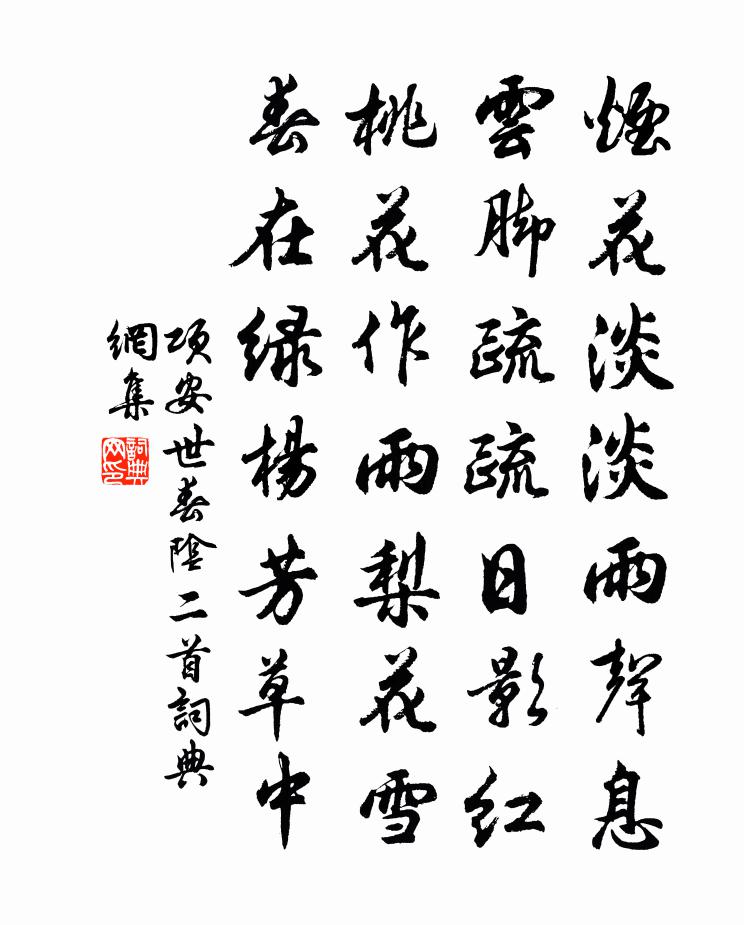 煙花淡淡雨聲息
雲脚疏疏日影紅
桃花作雨梨花雪
春在緑楊芳草中
項安世春陰二首詞典
網集
詞典網印